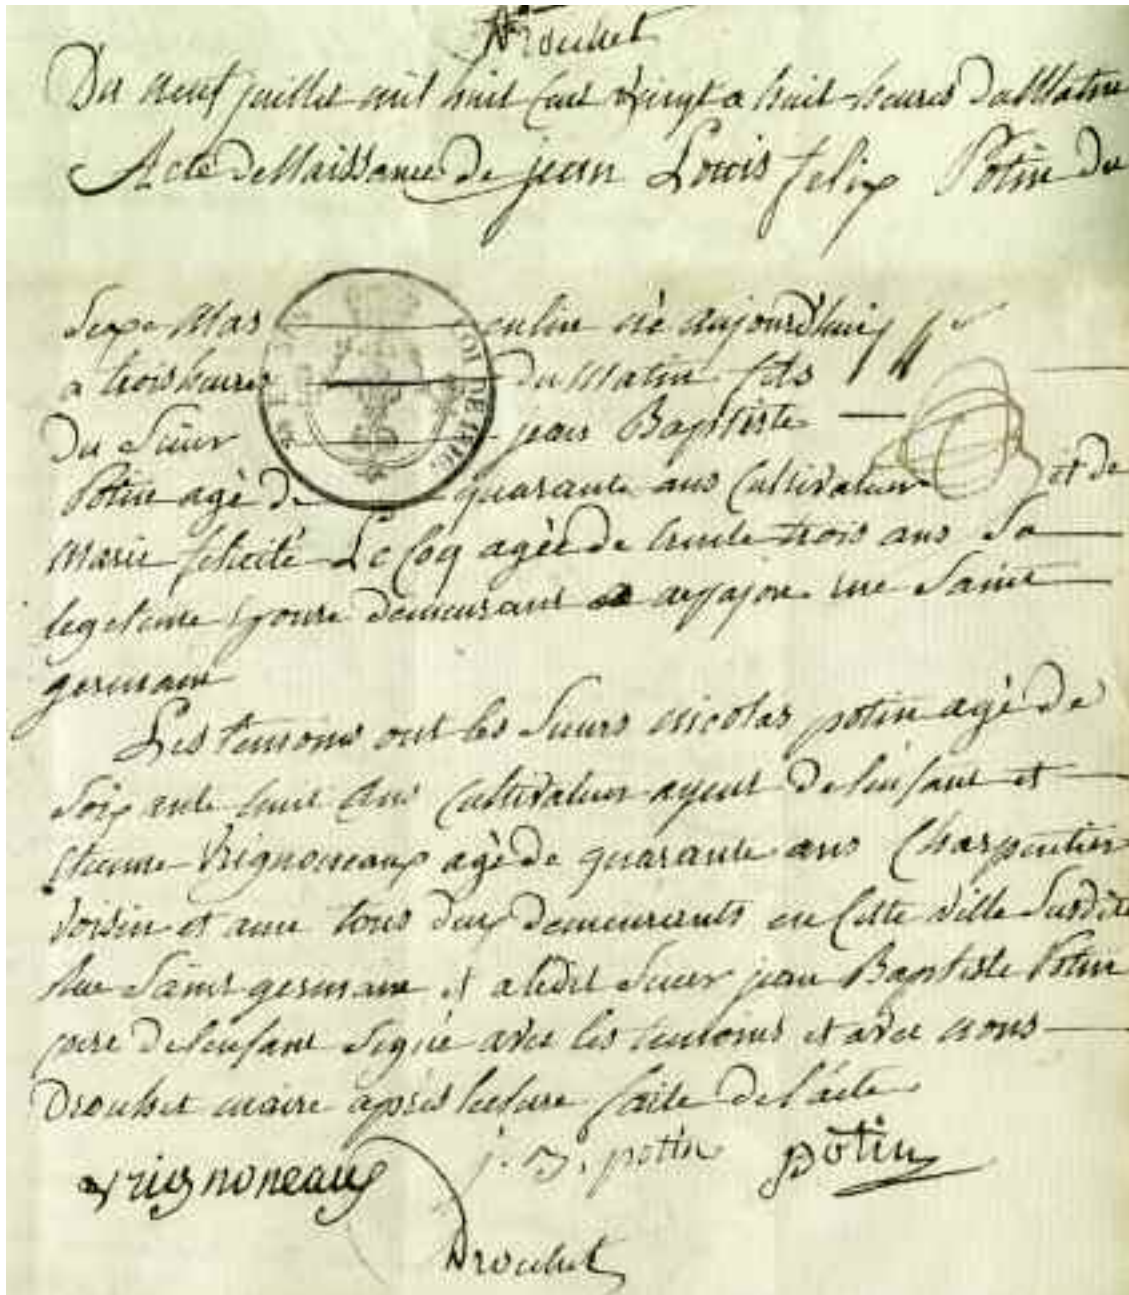 Drouhet
Du neuf juillet mil huit Cent vingt a huit heures Du Matin
Acte De Naissance De jean Louis felix Potin du
Sexe Mas culin né aujourd'hui
a trois heures Du Matin fils
Du Sieur jean Baptiste
Potin agé De quarante ans Cultivateur et de
Marie felicité Le Coq agée De trente trois ans Sa
legitime Epouse demeurant a arpajon rue Saint
germain
Les temoins ont les Sieurs nicolas potin agé De
Soixante huit Ans Cultivateur ayeul De l'enfant et
Etienne Vrignoneaux agé De quarante ans Charpentier
Voisin et ami tous deux Demeurants en Cette Ville Susdite
Rue Saint germain et a ledit Sieur jean Baptiste Potin
pere De l'enfant Signé avec les temoins et avec nous
Drouhet maire après lecture faite De l'acte
vrignoneaux j. B. potin potin
Drouhet